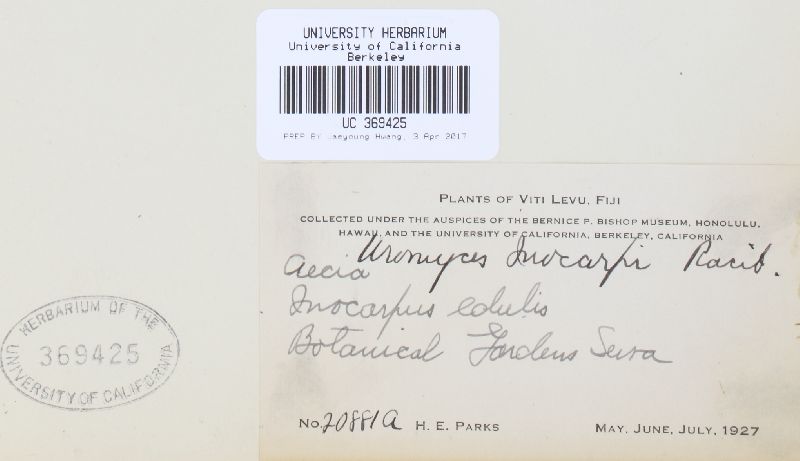 UNIVERSITY HERBARIUM
University of California
Berkeley
UC 369425
PREP BY Jaeyoung Hwang, 3 Apr 2017
PLANTS OF VITI LEVU, FIJI
COLLECTED UNDER THE AUSPICES OF THE BERNICE P. BISHOP MUSEUM, HONOLULU,
HAWAII, AND THE UNIVERSITY OF CALIFORNIA, BERKELEY, CALIFORNIA
Uromyces Inocarpi Racib.
Aecia
Inocarpus edulis
Botanical Gardens Suva
No. 20881A H. E. PARKS MAY, JUNE, JULY, 1927
HERBARIUM OF THE
369425
UNIVERSITY OF CALIFORNIA